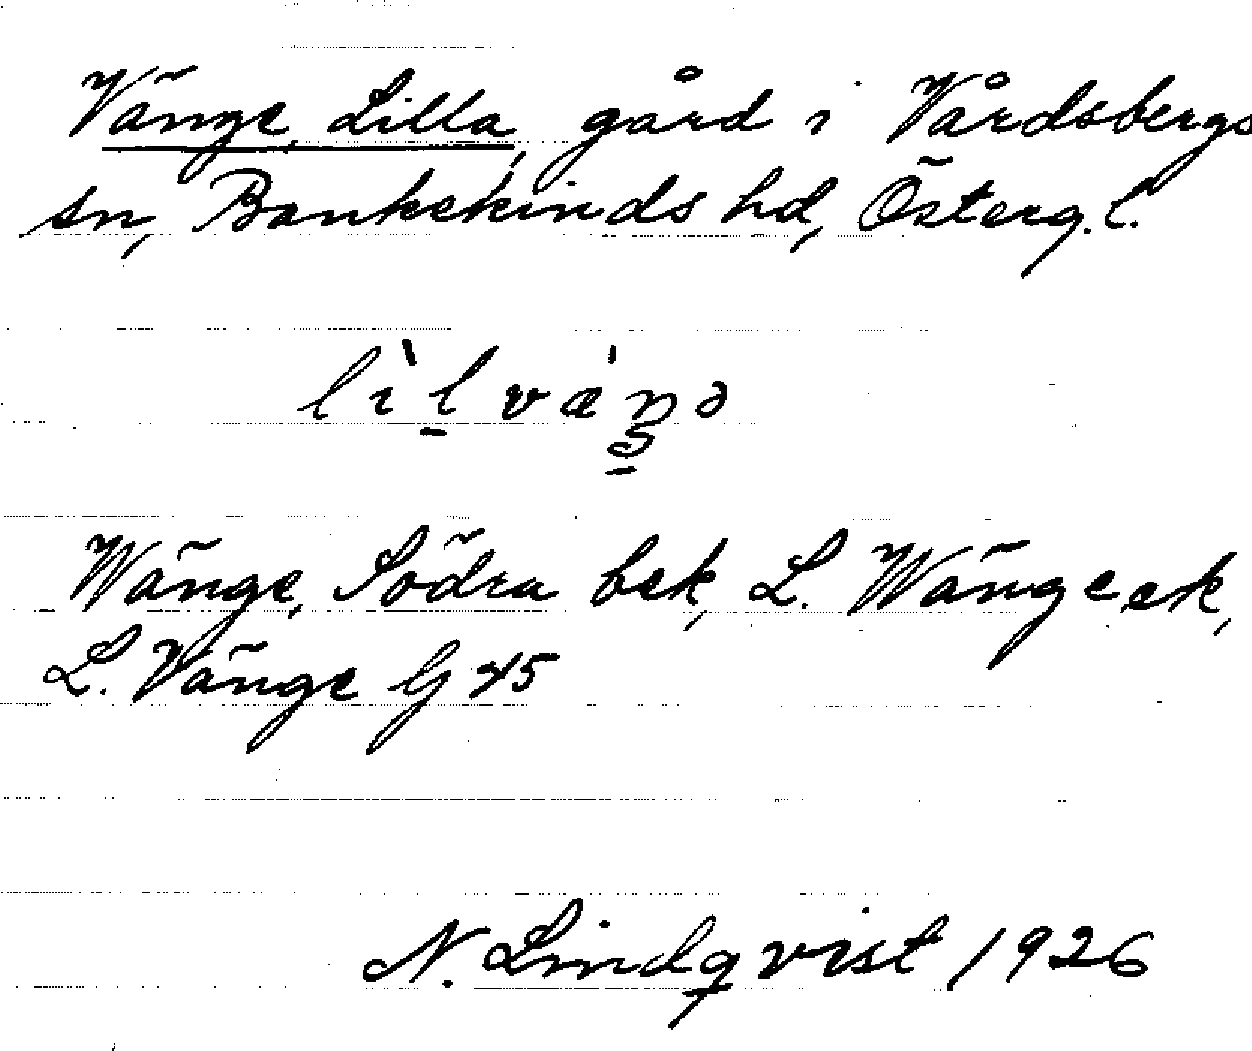 Vänge, Lilla, gård i Vårdsbergs
sn, Bankekinds hd, Österg. l.
lìl væ̀ŋə
Wänge, Södra bek, L. Wänge ek,
L. Vänge G 45
N. Lindqvist 1926